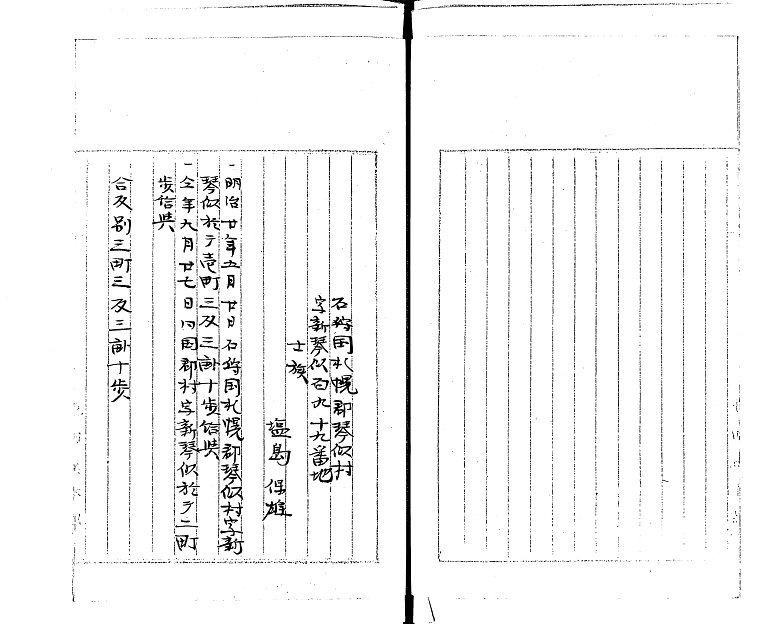 石狩国札幌郡琴似村
字新琴似百九十九番地
士族
塩島保雄
一明治廿年五月廿日石狩国札幌郡琴似村字新
琴似於テ壱町三反三畝十歩給与
一仝年九月廿七日同国郡村字新琴似於テ二町
歩給与
合反別三町三反三畝十歩